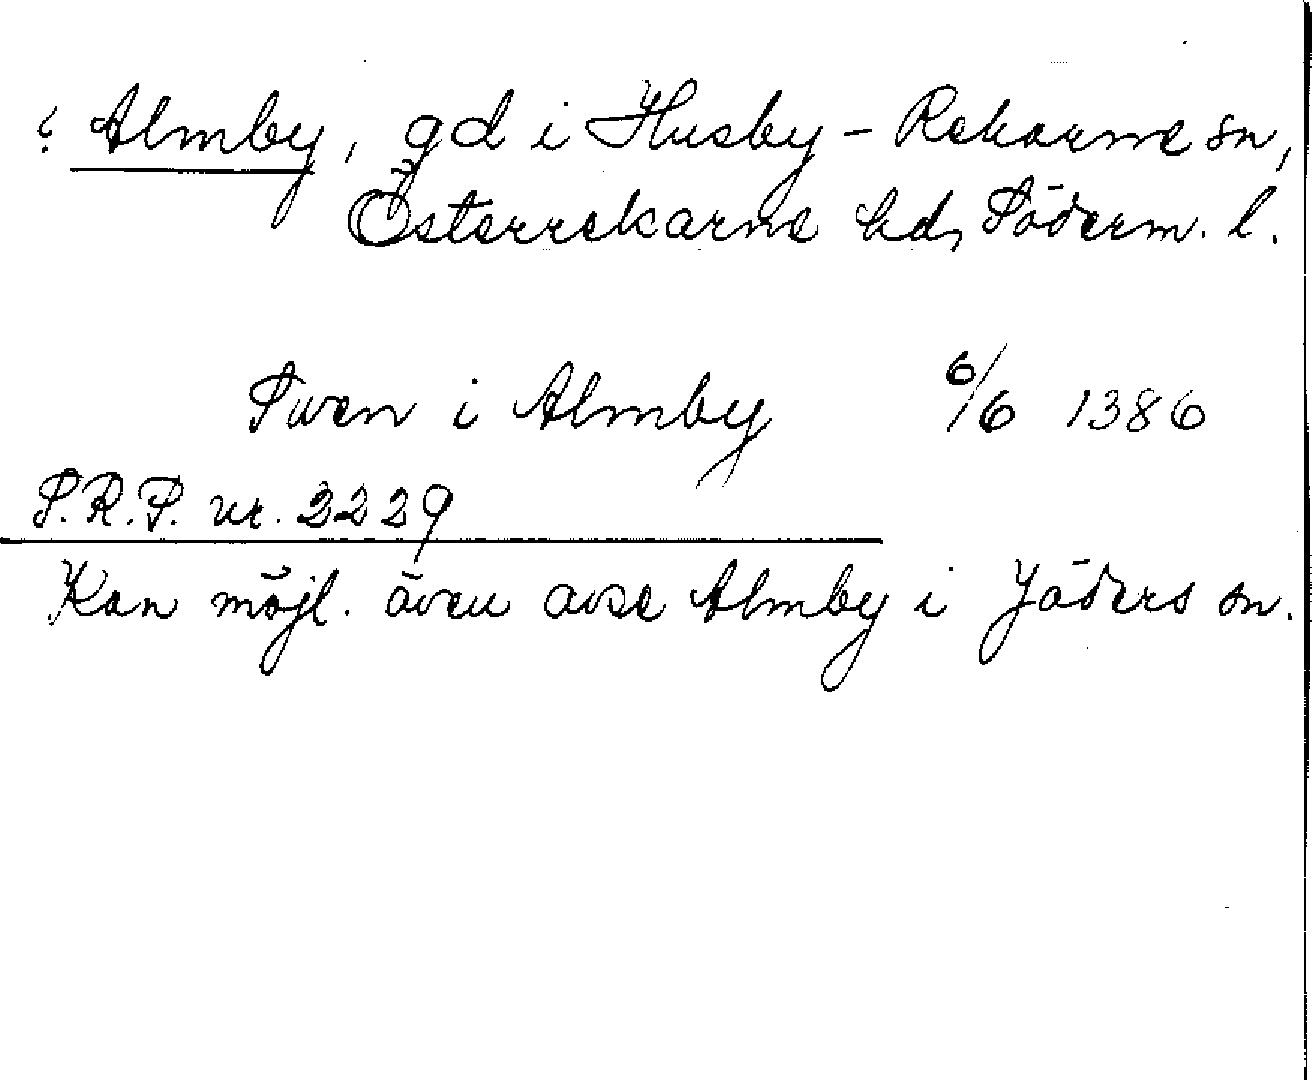 ? Almby, gd i Husby-Rekarne sn,
Österrekarne hd, Söderm. l.
Swen i Almby 6/6 1386
S.R.P. nr. 2229
Kan möjl. även avse Almby i Jäders sn.